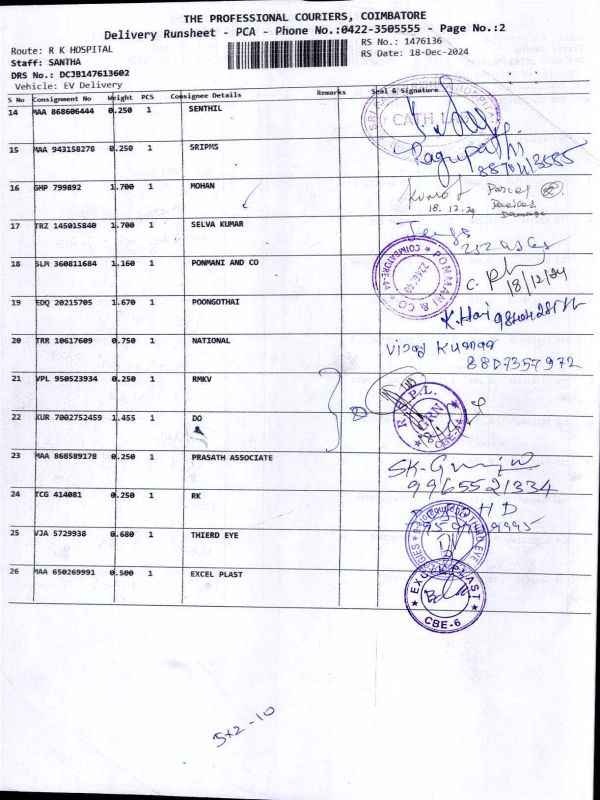 THE PROFESSIONAL COURIERS, COIMBATORE
Delivery Runsheet - PCA - Phone No.:0422-3505555 - Page No.:2
Route: R K HOSPITAL
RS No.: 1476136
Staff: SANTHA
RS Date: 18-Dec-2024
DRS No.: DCJB147613602
Vehicle: EV Delivery
S No Consignment No Weight PCS Consignee Details Remarks Seal & Signature
14 MAA 868606444 0.250 1 SENTHIL
CATH LAB
15 MAA 943158278 0.250 1 SRIPMS
Ragupathi
16 GMP 799892 1.700 1 MOHAN
Parcel
18.12.24 Received
Damage
17 TRZ 145015840 1.700 1 SELVA KUMAR
18 SLM 360811684 1.160 1 PONMANI AND CO
PONMANI & CO
COIMBATORE-44
18/12/24
19 EDQ 20215705 1.670 1 POONGOTHAI
20 TRR 10617609 0.750 1 NATIONAL
Vijay Kumar
8807357972
21 VPL 950523934 0.250 1 RMKV
22 KUR 7002752459 1.455 1 DO
R.S.P.L.
GRN
23 MAA 868589178 0.250 1 PRASATH ASSOCIATE
9965521334
24 TCG 414081 0.250 1 RK
25 VJA 5729938 0.680 1 THIERD EYE
26 MAA 650269991 0.500 1 EXCEL PLAST
EXCEL PLAST
CBE-6